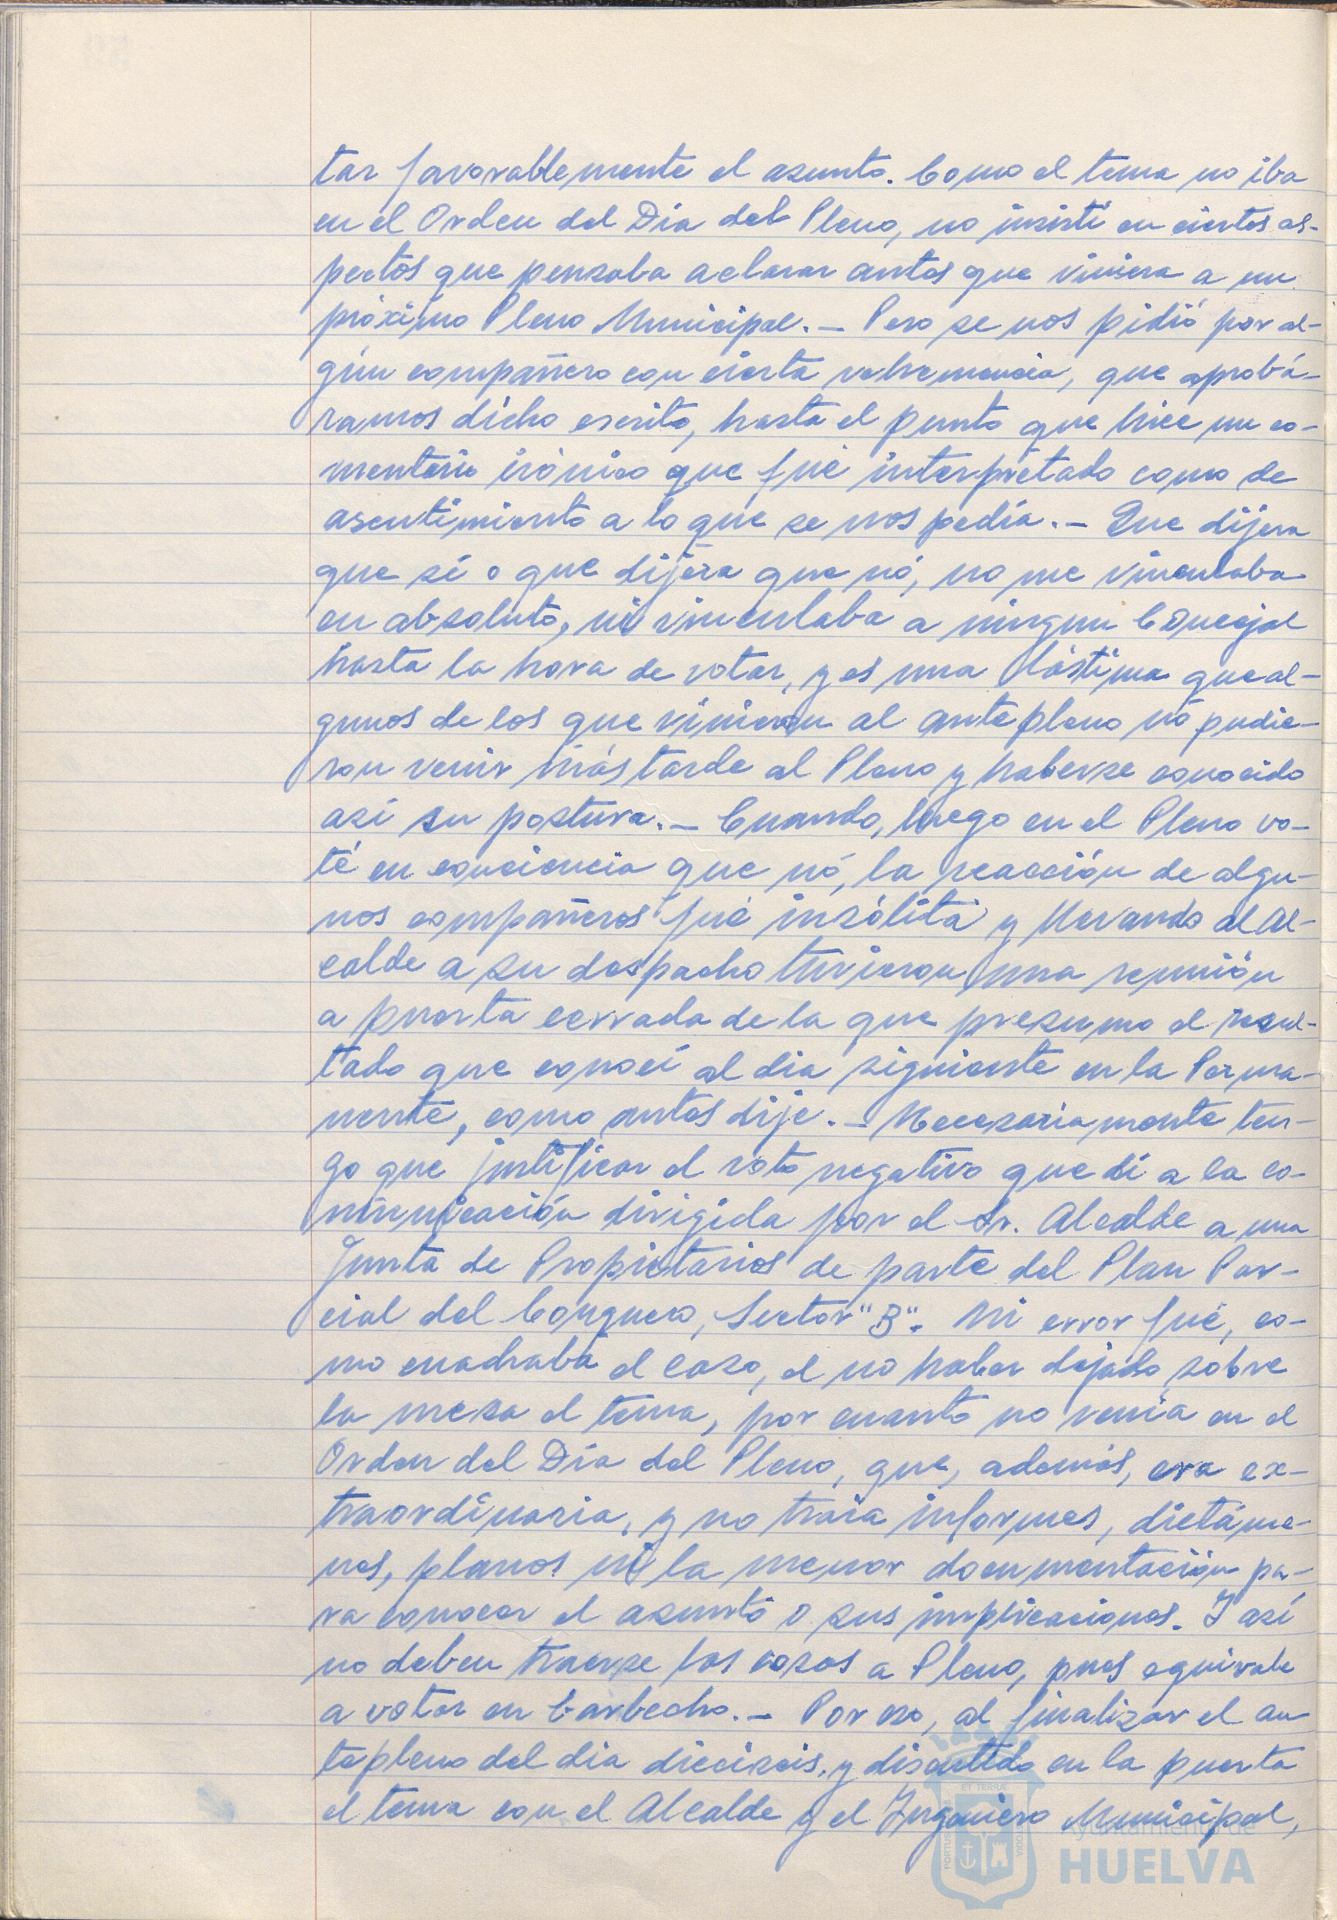 tar favorablemente el asunto. Como el tema no iba
en el Orden del Día del Pleno, no insistí en ciertos as-
pectos que pensaba aclarar antes que viniera a un
próximo Pleno Municipal.— Pero se nos pidió por al-
gún compañero con cierta vehemencia, que aprobá-
ramos dicho escrito, hasta el punto que hice un co-
mentario irónico que fué interpretado como de
asentimiento a lo que se nos pedía.— Que dijera
que sí o que dijera que nó, no me vinculaba
en absoluto, ni vinculaba a ningun Concejal
hasta la hora de votar, y es una lástima que al-
gunos de los que vinieron al antepleno no pudie-
ron venir más tarde al Pleno y haberse conocido
así su postura.— Cuando, luego en el Pleno vo-
té en conciencia que nó, la reacción de algu-
nos compañeros fué insólita y llevando al Al-
calde a su despacho tuvieron una reunión
a puerta cerrada de la que presumo el resul-
tado que conocí al dia siguiente en la Perma-
nente, como antes dije.— Necesariamente ten-
go que justificar el voto negativo que dí a la co-
municación dirigida por el Sr. Alcalde a una
Junta de Propietarios de parte del Plan Par-
cial del Conquero, Sector "B". Mi error fué, co-
mo cuadraba el caso, el no haber dejado sobre
la mesa el tema, por cuanto no venía en el
Orden del Día del Pleno, que, además, era ex-
traordinaria, y no traia informes, dictáme-
nes, planos ni la menor documentación pa-
ra conocer el asunto o sus implicaciones. Y así
no deben traerse las cosas a Pleno, pues equivale
a votar en barbecho.— Por eso, al finalizar el an
tepleno del dia dieciseis, y discutido en la puerta
el tema con el Alcalde y el Ingeniero Municipal,
Ayuntamiento de
HUELVA